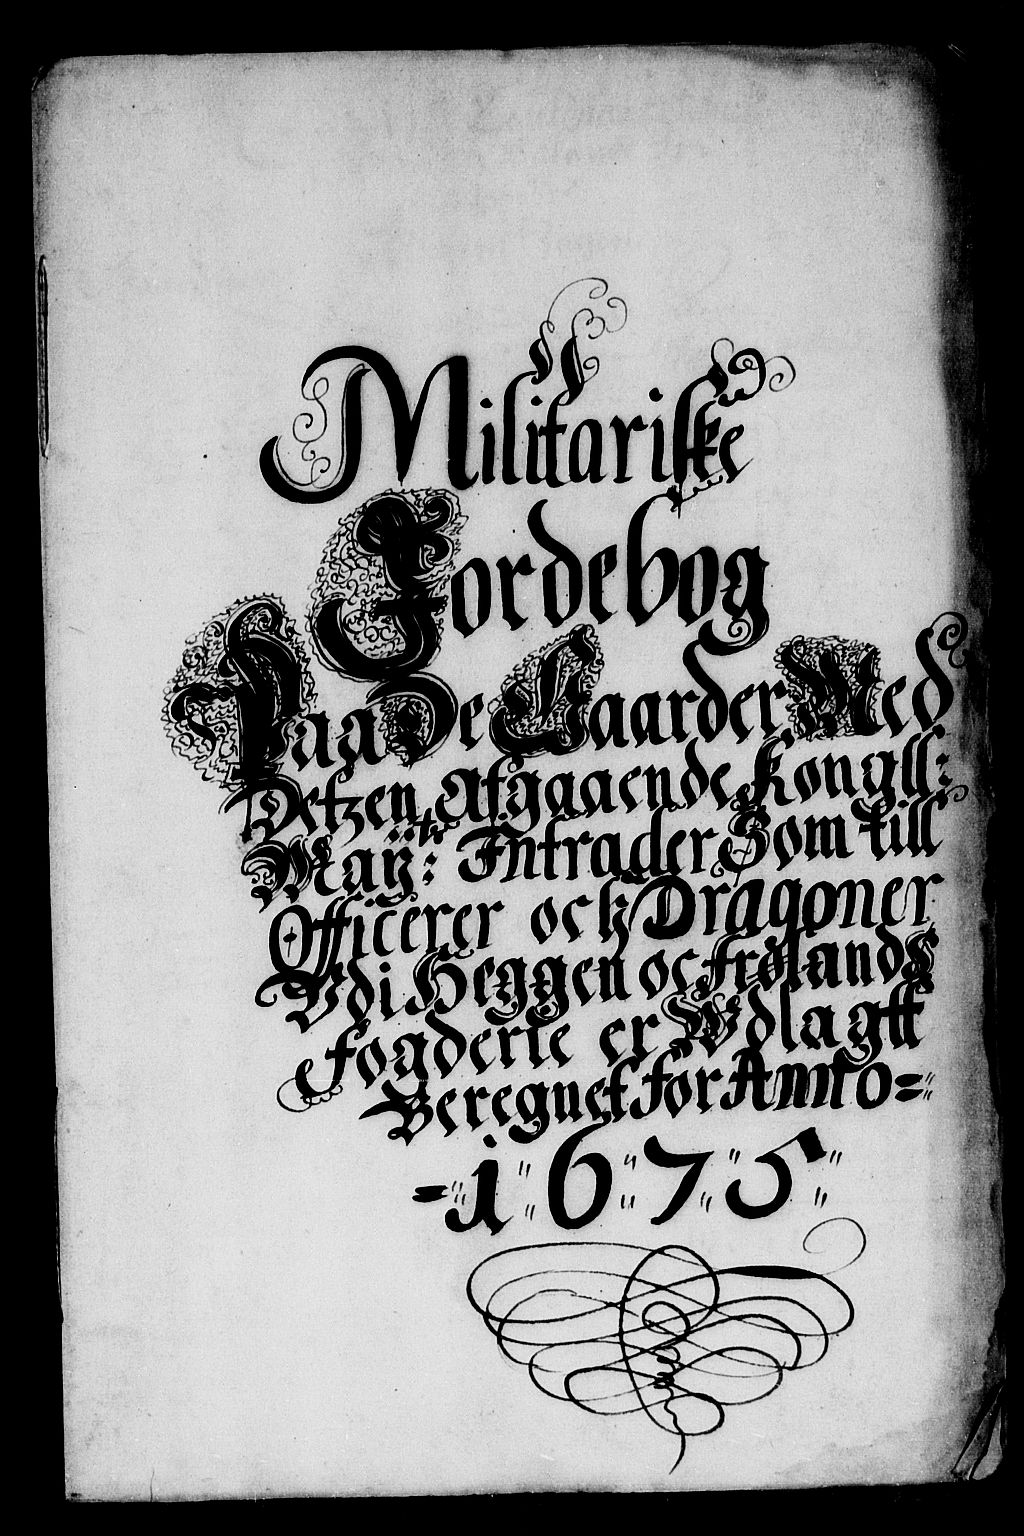 Militariske
Jordebog
Paa De Gaarder Med
Detzen Afgaaende Kongll:
Maÿtz: Intrader Som till
Officerer och Dragoner
Vdi Heggen oc frølands
fogderie er Vdlagtt
Beregnet for Anno =
- 1675